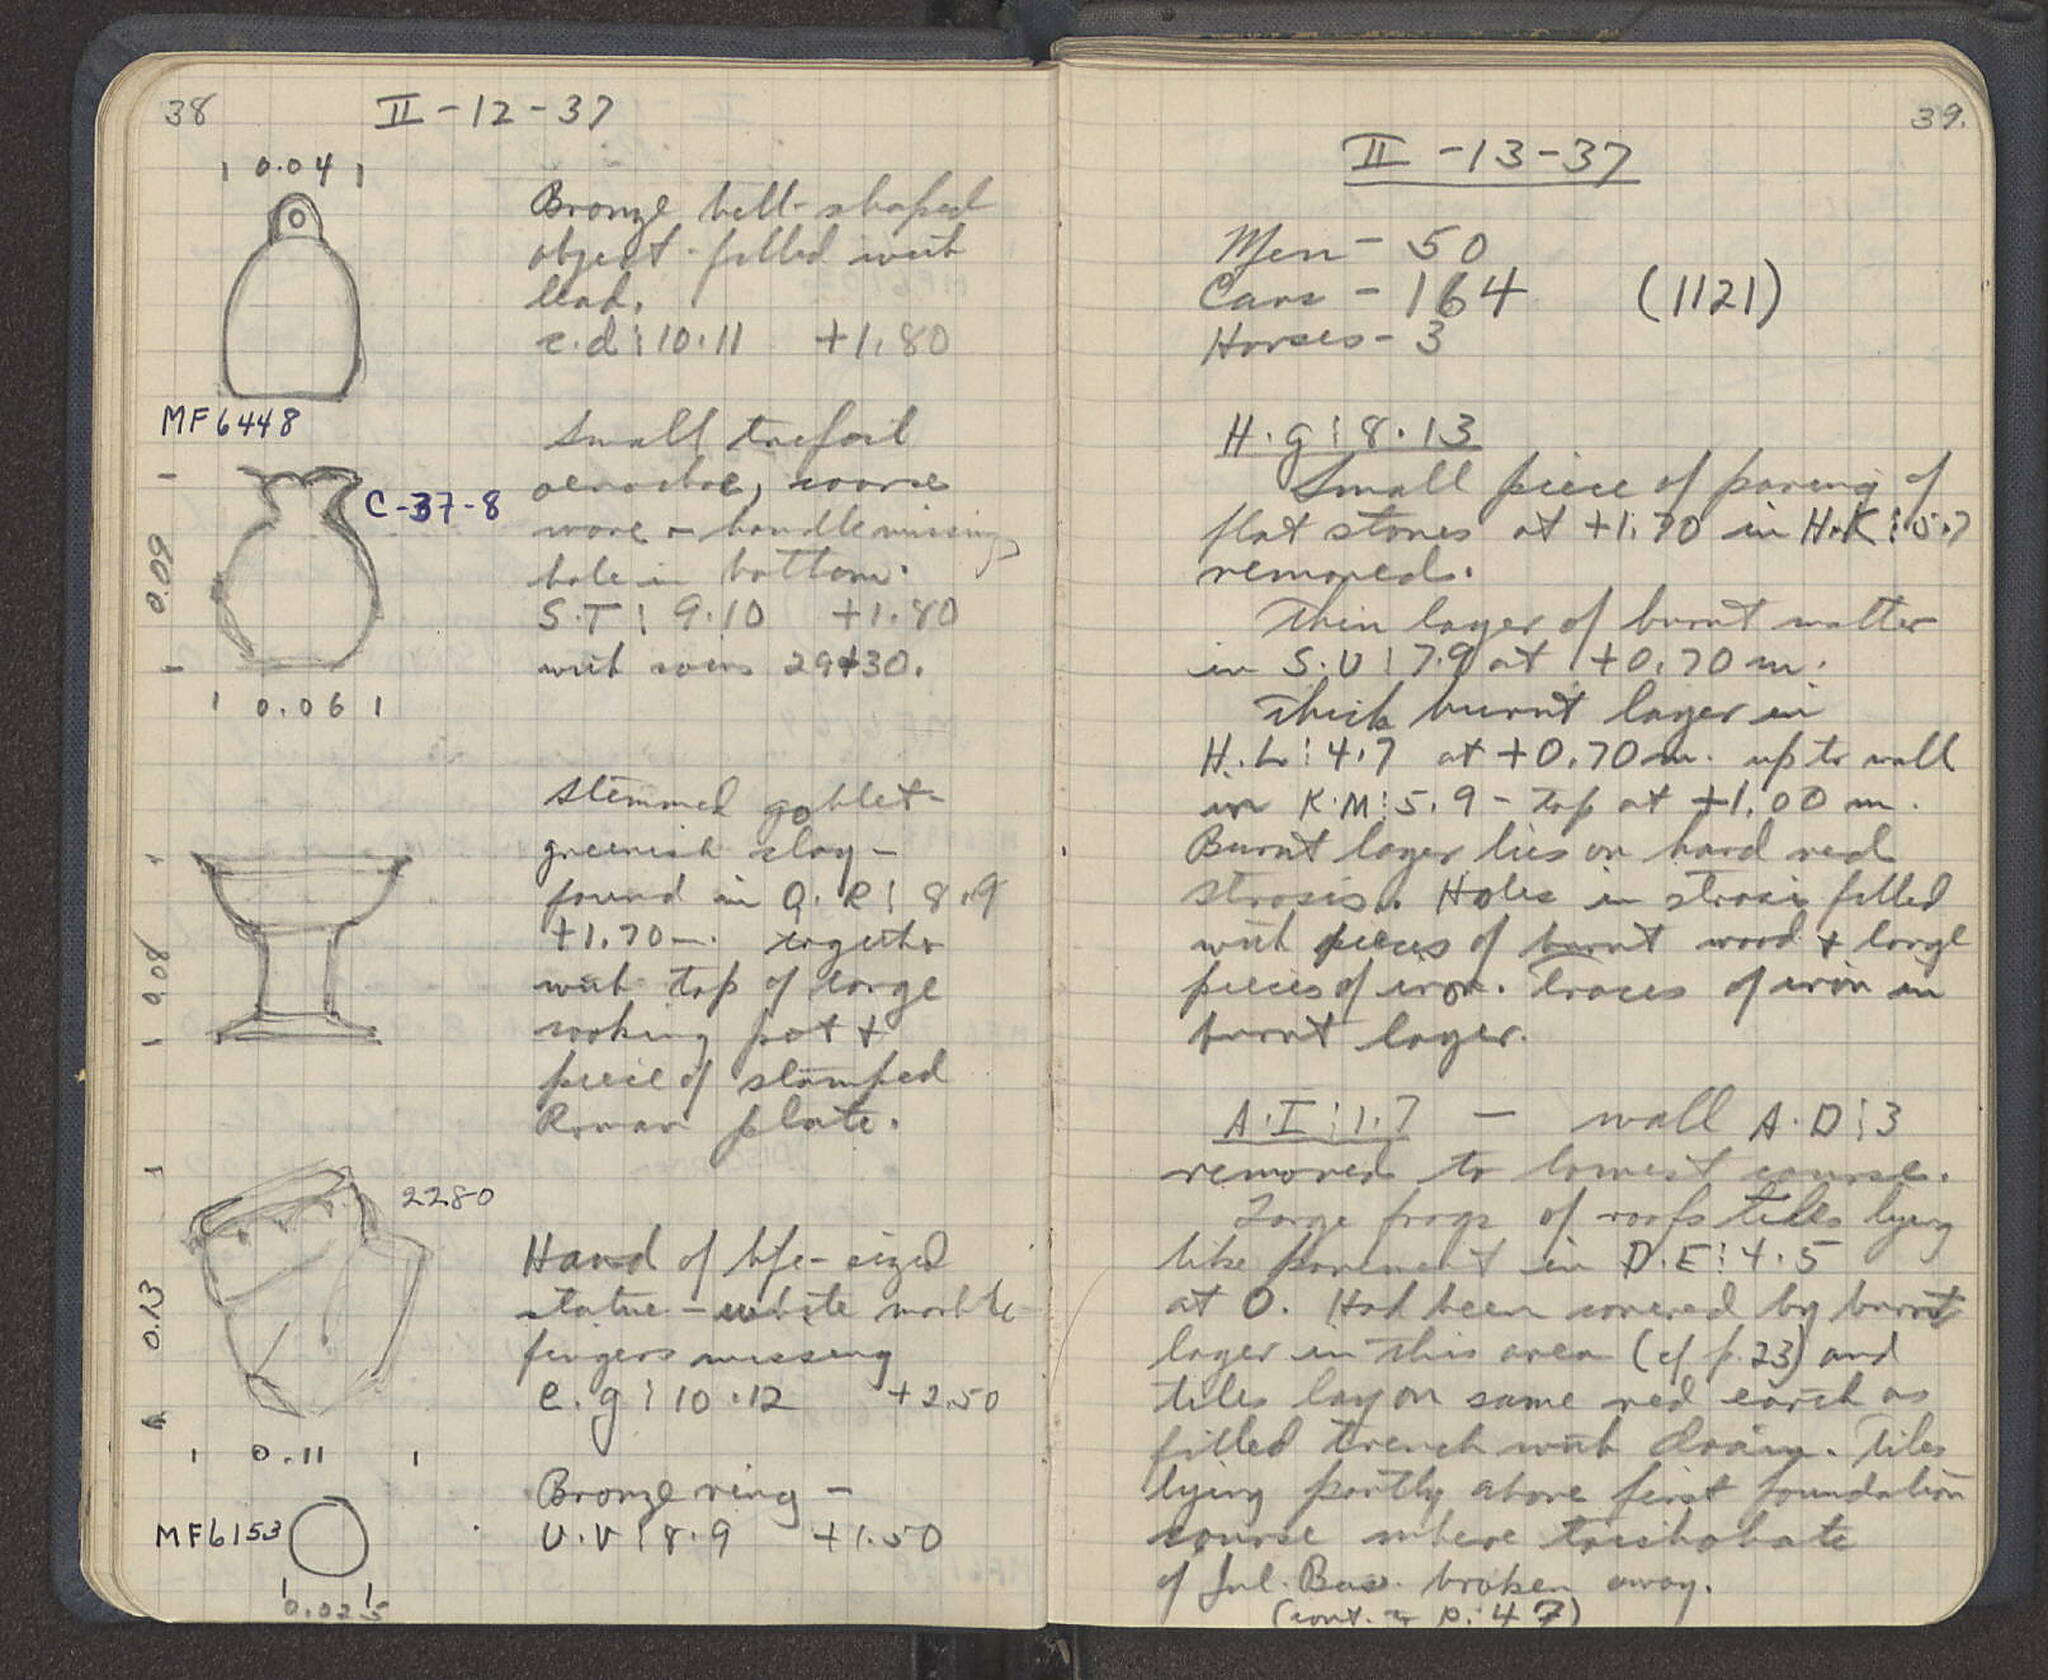 38
II-12-37
0.04
Bronze bell-shaped
object - filled with
lead.
c.d:10.11 +1.80
MF6448
Small trefoil
oenochoe, coarse
ware - handle missing,
hole in bottom.
S.T: 9.10 +1.80
with coins 29+30.
C-37-8
0.09
0.06
Stemmed goblet-
greenish clay-
found in Q.R: 8.9
+1.70m. together
with top of large
cooking pot +
piece of stamped
Roman plate.
0.08
2280
Hand of life-sized
statue - white marble
fingers missing
e.g:10.12 +2.50
0.13
0.11
Bronze ring -
U.V:8.9 +1.50
MF6153
0.025
39.
II-13-37
Men - 50
Cars - 164 (1121)
Horses - 3
H.g:8.13
Small piece of paving of
flat stones at +1.70 in H.K:5.7
removed.
Thin layer of burnt matter
in S.U:7.9 at +0.70 m.
Thick burnt layer in
H.L:4.7 at +0.70m. up to wall
in K.M:5.9 - top at +1.00 m.
Burnt layer lies on hard red
strosis. Holes in strosis filled
with pieces of burnt wood + large
pieces of iron. Traces of iron in
burnt layer.
A.I:1.7 - wall A.D:3
removed to lowest course.
Large frags of roof tiles lying
like pavement in D.E:4.5
at 0. Had been covered by burnt
layer in this area (cf p.23) and
tiles lay on same red earth as
filled trench with drain. Tiles
lying partly above first foundation
course where toichobate
of Jul. Bas. broken away.
(cont. p. 47)